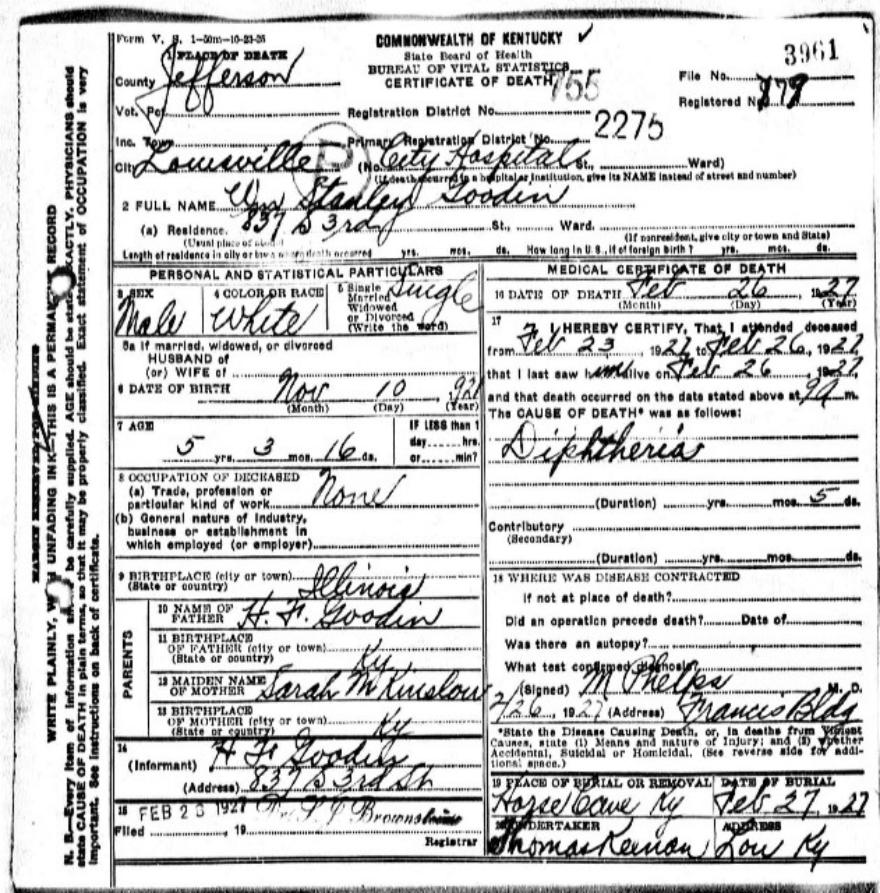 Form V. S. 1-50m-10-23-25
COMMONWEALTH OF KENTUCKY ✓
State Board of Health
BUREAU OF VITAL STATISTICS
CERTIFICATE OF DEATH
755
3961
File No.
Registered No. 979
1 PLACE OF DEATH
County Jefferson
Vot. Pct.
Registration District No.
2275
Inc. Town
Primary Registration District No.
City Louisville (No. City Hospital St., Ward)
(If death occurred in a hospital or institution, give its NAME instead of street and number)
2 FULL NAME Wm Stanley Goodin
(a) Residence. 837 S 3rd St., Ward.
(Usual place of abode) (If nonresident, give city or town and State)
Length of residence in city or town where death occurred yrs. mos. ds. How long in U. S., if of foreign birth? yrs. mos. ds.
PERSONAL AND STATISTICAL PARTICULARS
3 SEX
Male
4 COLOR OR RACE
White
5 Single
Married
Widowed
or Divorced
(Write the word)
Single
5a If married, widowed, or divorced
HUSBAND of
(or) WIFE of
6 DATE OF BIRTH Nov 10 921
(Month) (Day) (Year)
7 AGE
5 yrs. 3 mos. 16 ds.
IF LESS than 1
day hrs.
or min?
8 OCCUPATION OF DECEASED
(a) Trade, profession or
particular kind of work None
(b) General nature of industry,
business or establishment in
which employed (or employer)
9 BIRTHPLACE (city or town)
(State or country) Illinois
PARENTS
10 NAME OF
FATHER H. F. Goodin
11 BIRTHPLACE
OF FATHER (city or town)
(State or country) Ky
12 MAIDEN NAME
OF MOTHER Sarah McKinslow
13 BIRTHPLACE
OF MOTHER (city or town)
(State or country) Ky
14
(Informant) H F Goodin
(Address) 837 S 3rd St
15 FEB 26 1927
Filed , 19
Registrar
MEDICAL CERTIFICATE OF DEATH
16 DATE OF DEATH Feb 26 , 1927
(Month) (Day) (Year)
17
I HEREBY CERTIFY, That I attended deceased
from Feb 23 , 1927 to Feb 26 , 1927
that I last saw him alive on Feb 26 , 1927
and that death occurred on the date stated above at 9 a m.
The CAUSE OF DEATH* was as follows:
Diphtheria
(Duration) yrs. mos. 5 ds.
Contributory
(Secondary)
(Duration) yrs. mos. ds.
18 WHERE WAS DISEASE CONTRACTED
If not at place of death?
Did an operation precede death? Date of
Was there an autopsy?
What test confirmed diagnosis?
(Signed) M Phelps M. D.
2/26 , 1927 (Address) Francis Bldg
*State the Disease Causing Death, or, in deaths from Violent
Causes, state (1) Means and nature of Injury; and (2) whether
Accidental, Suicidal or Homicidal. (See reverse side for addi-
tional space.)
19 PLACE OF BURIAL OR REMOVAL
Horse Cave Ky
DATE OF BURIAL
Feb 27, 1927
20 UNDERTAKER
Thomas Keenan
ADDRESS
Lou Ky
MARGIN RESERVED FOR BINDING
WRITE PLAINLY, WITH UNFADING INK—THIS IS A PERMANENT RECORD
N. B.—Every item of information should be carefully supplied. AGE should be stated EXACTLY. PHYSICIANS should
state CAUSE OF DEATH in plain terms, so that it may be properly classified. Exact statement of OCCUPATION is very
important. See instructions on back of certificate.